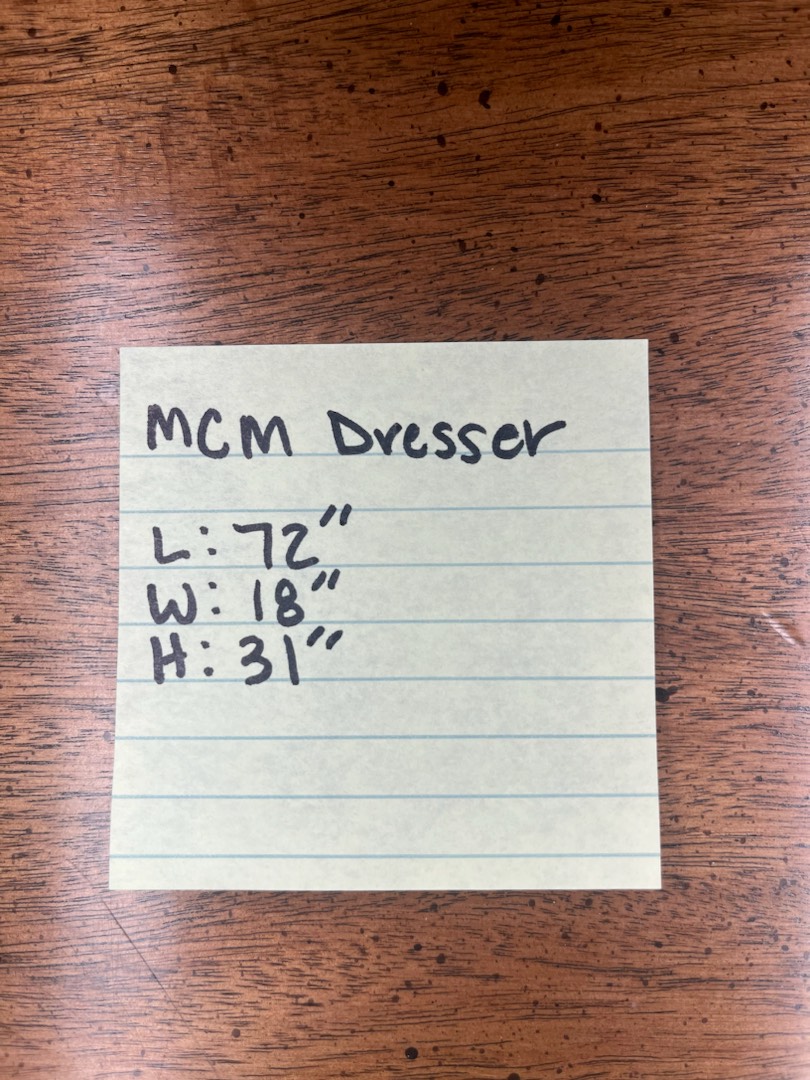 MCM Dresser
L: 72"
W: 18"
H: 31"